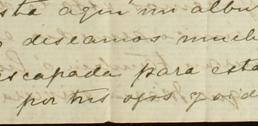 sta aquí mi albu
o deseamos much
scapada para esta
por tus ojos y od